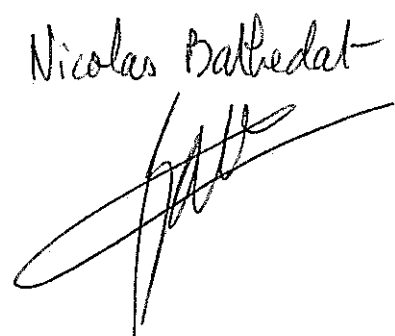 Nicolas Bathedat